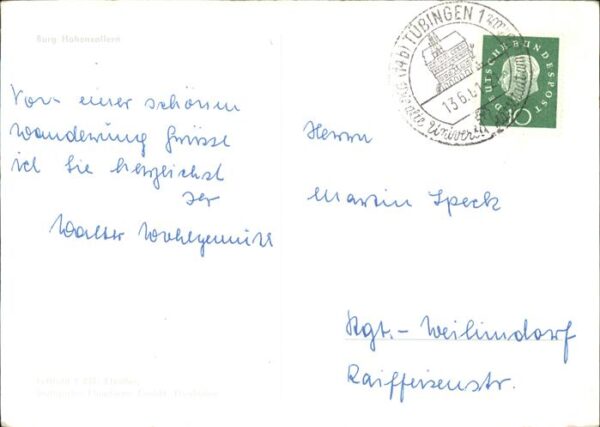 Burg Hohenzollern
Von einer schönen
Wanderung Grüsse
ich Sie herzlichst
Ihr
Walter Wohlgemuth
(14b) TÜBINGEN 1
13.6.61
alte Universitätsstadt
DEUTSCHE BUNDESPOST
10
Herrn
Martin Speck
Stgt.- Weilimdorf
Raiffeisenstr.